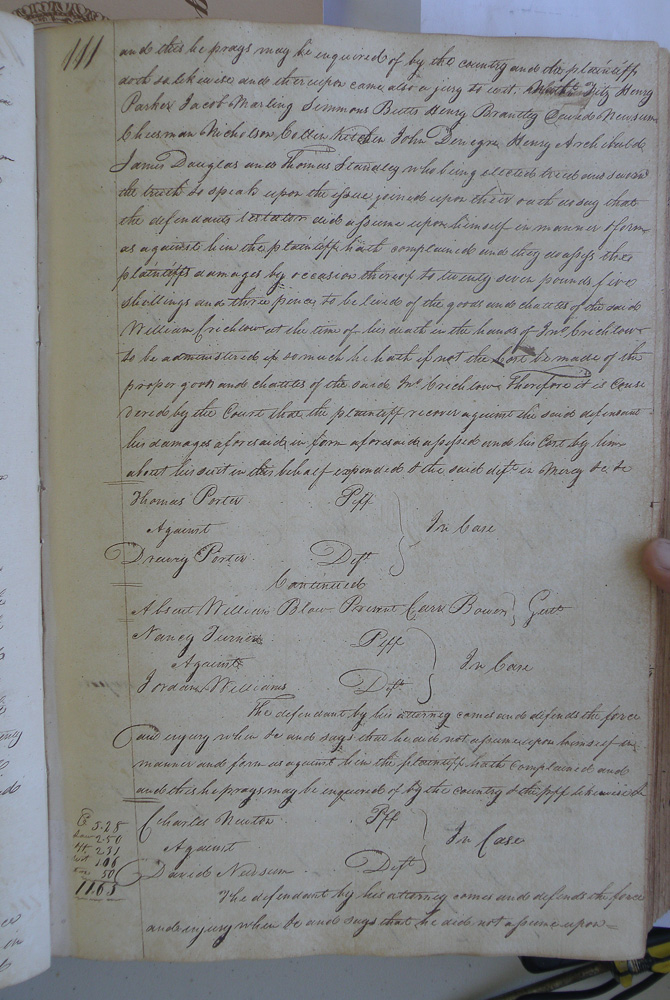 111
and this he prays may be inquired of by the country and the plaintiff
doth so likewise and thereupon came also a jury to wit. Fitz Henry
Parker Jacob Marling Simmons Betts Henry Brantley David Newsum
Cheesman Nicholson Collin Kitchen John Denegre Henry Archibald
James Douglas and Thomas Standley who being elected tried and sworn
the truth to speak upon the issue joined upon their oath do say that
the defendants testator did assume upon himself in manner & form
as against him the plaintiff hath complained and they do assess the
plaintiffs damages by occasion thereof to twenty seven pounds five
shillings and three pence to be levied of the goods and chattels of the said
William Crichlow at the time of his death in the hands of Jno. Crichlow
to be administered if so much he hath if not the Cost be made of the
proper goods and chattels of the said Jno. Crichlow Therefore it is Consi
dered by the Court that the plaintiff recover against the said defendant
his damages aforesaid in form aforesaid assessed and his Cost by him
about his suit in this behalf expended & the said deft in Mercy &c &c
Thomas Porter Plff
Against In Case
Drewry Porter Deft
Continued
Absent William Blow Present Carr Bowers Gent
Nancy Turner Plff
Against In Case
Jordan Williams Deft
The defendant by his attorney comes and defends the force
and injury when &c and says that he did not assume upon himself in
manner and form as against him the plaintiff hath Complained and
and this he prays may be enquired of by the country & the plff likewise
Charles Newton Plff
Against In Case
David Nedsum Deft
C 5.28
2.50
2.31
1.06
50
11.65
The defendant by his attorney comes and defends the force
and injury when &c and says that he did not assume upon =